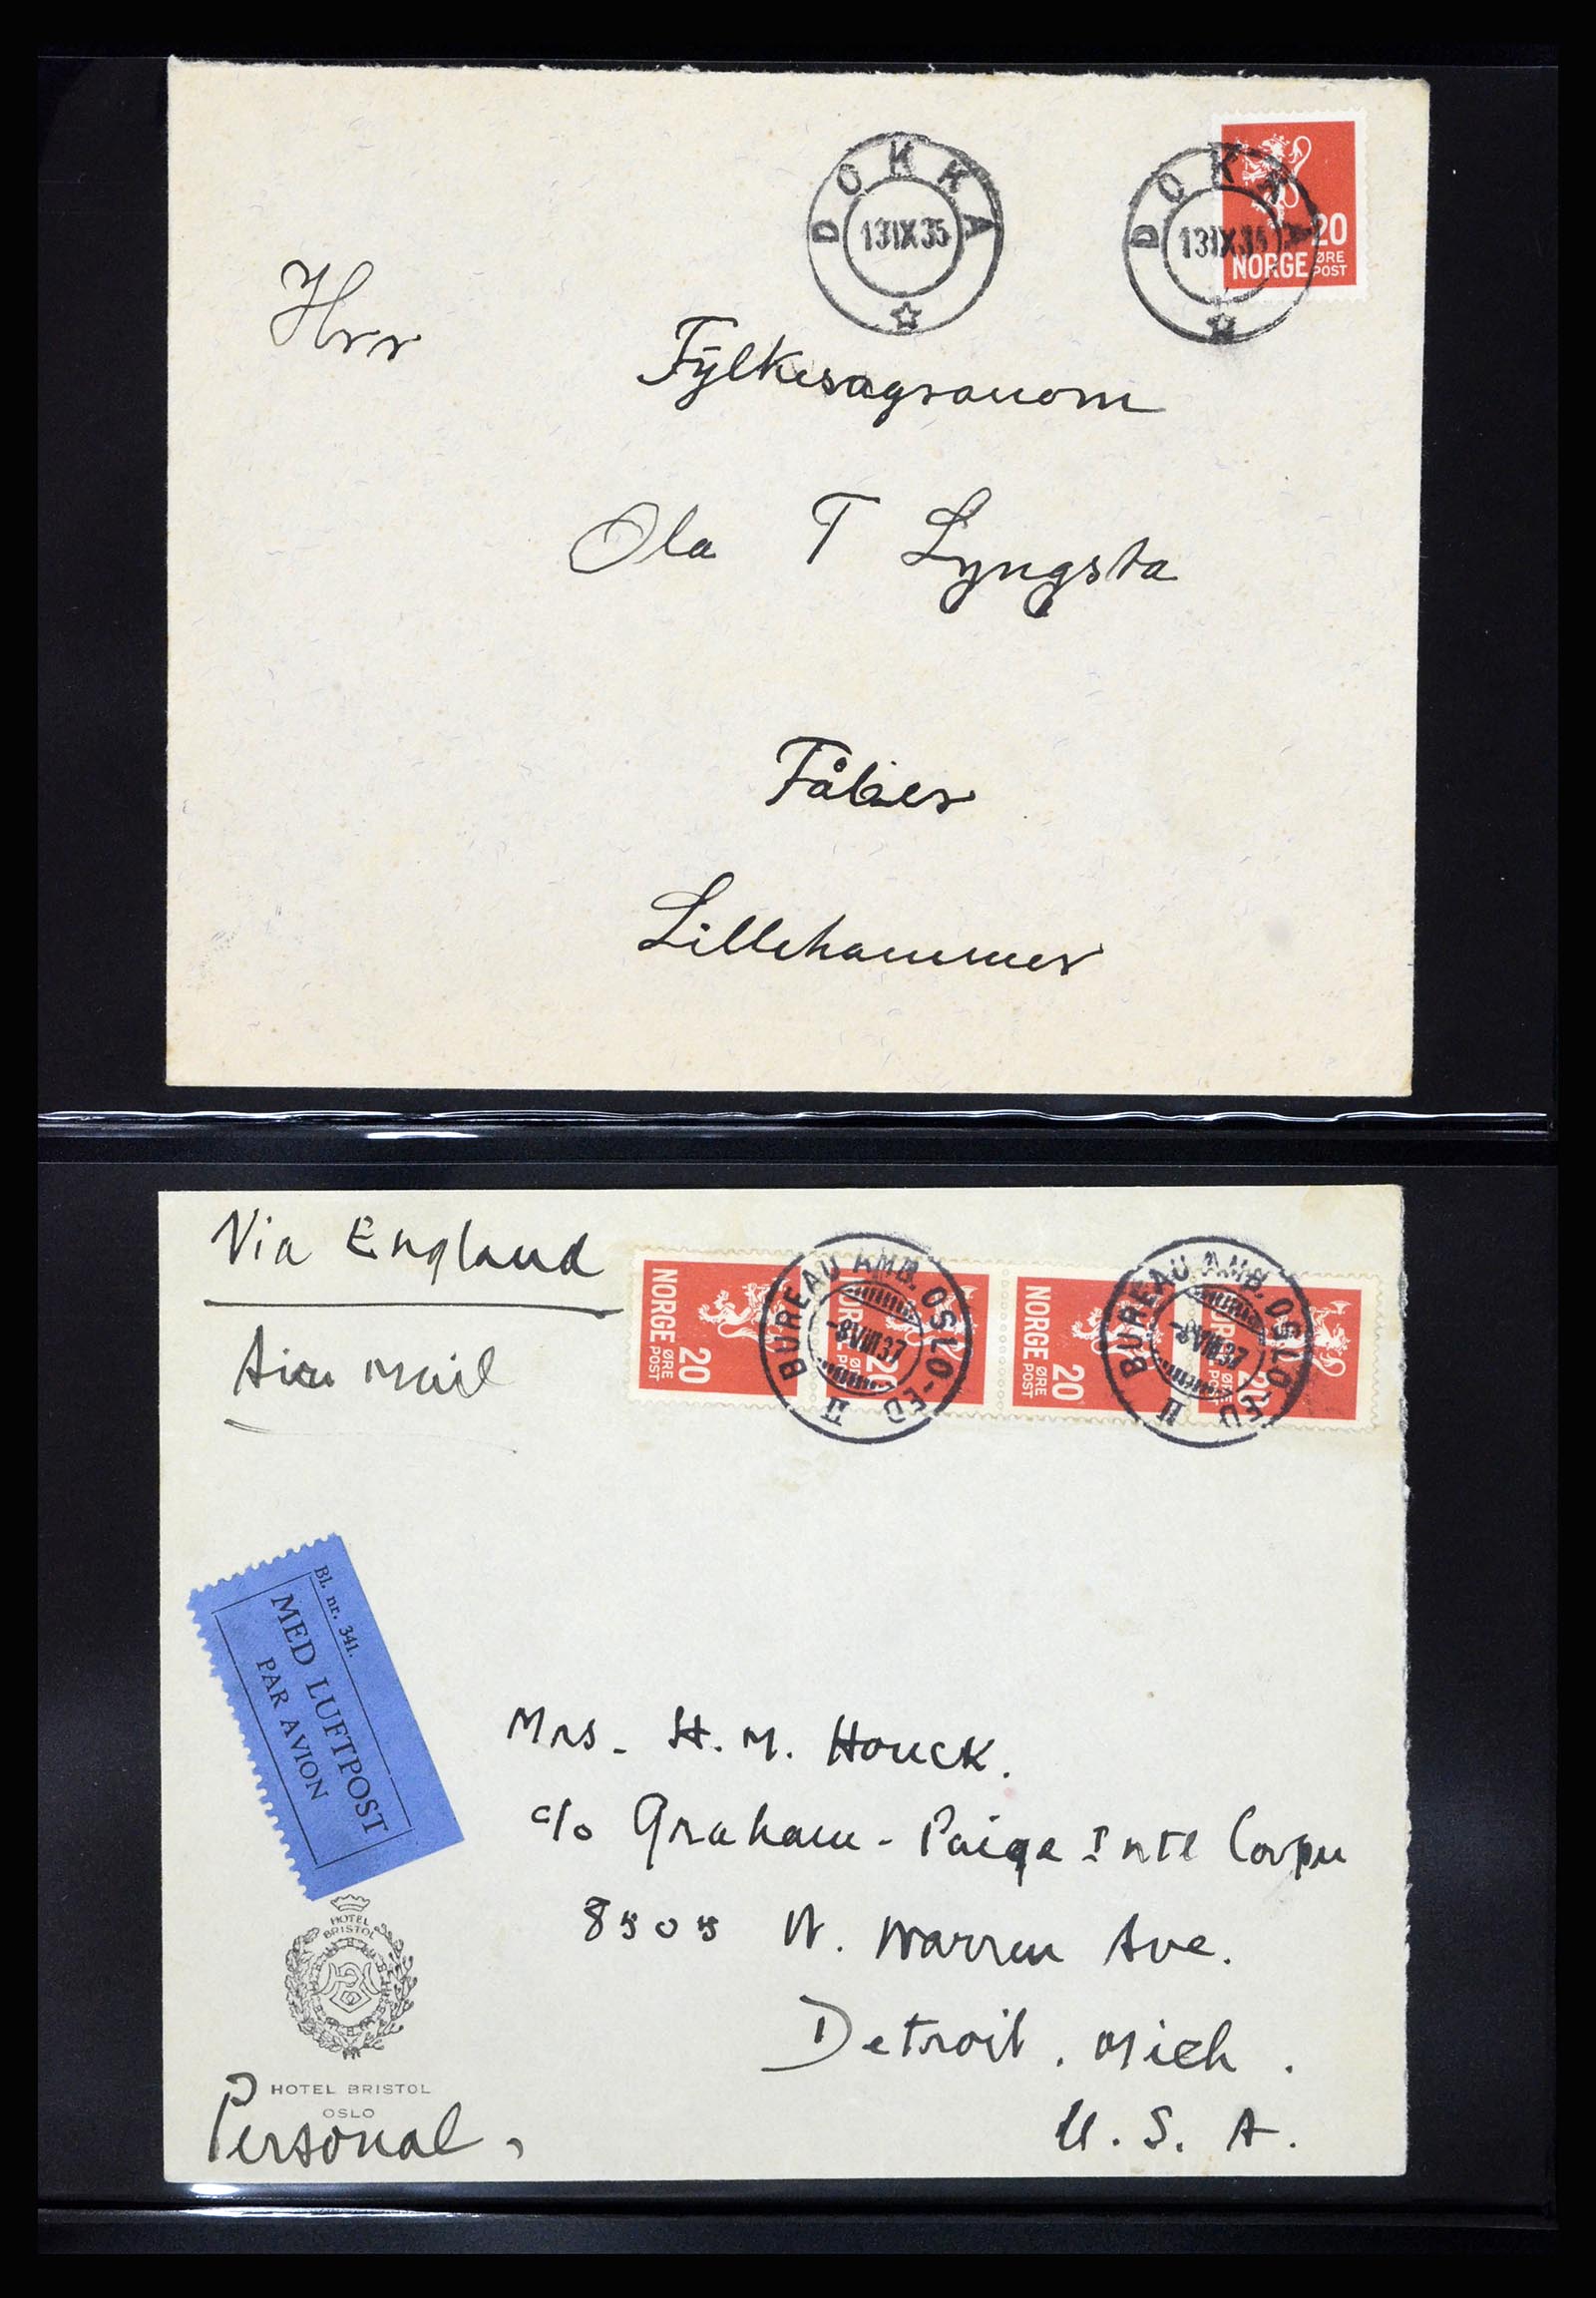 DOKKA
13IX35
DOKKA
13IX35
20
NORGE ØRE POST
Hrr
Fylkesagronom
Ola T Lyngsta
Fåber
Lillehammer
Via England
Air Mail
NORGE ØRE POST 20
NORGE ØRE POST 20
NORGE ØRE POST 20
NORGE ØRE POST 20
BUREAU AMB. OSLO-ED II
-8VIII37
BUREAU AMB. OSLO-ED II
-8VIII37
Bl. nr. 341.
MED LUFTPOST
PAR AVION
Mrs. H. M. Houck.
c/o Graham-Paige Intl Corpn
8505 W. Warren Ave.
Detroit. Mich.
U. S. A.
HOTEL BRISTOL
HOTEL BRISTOL
OSLO
Personal.